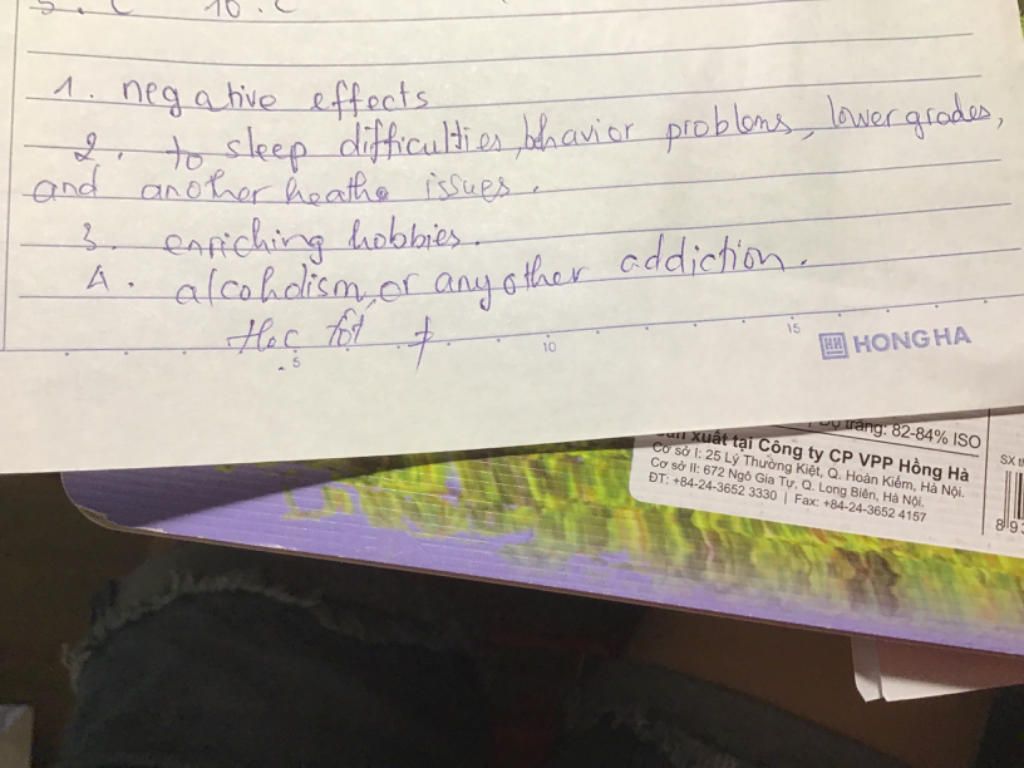 5. C 10. C
1. negative effects
2. to sleep difficulties, behavior problems, lower grades,
and another heathe issues.
3. enriching hobbies.
4. alcoholism, or any other addiction.
Học tốt
5 10 15 HH HONG HA
trắng: 82-84% ISO
xuất tại Công ty CP VPP Hồng Hà
Cơ sở I: 25 Lý Thường Kiệt, Q. Hoàn Kiếm, Hà Nội.
Cơ sở II: 672 Ngô Gia Tự, Q. Long Biên, Hà Nội.
ĐT: +84-24-3652 3330 | Fax: +84-24-3652 4157
SX
8 9